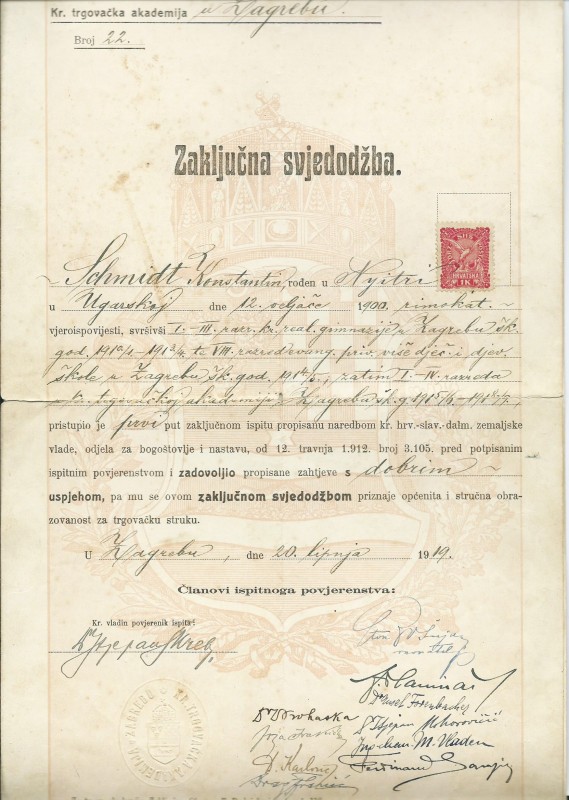 Kr. trgovačka akademija u Zagrebu.
Broj 22.
Zaključna svjedodžba.
SHS
HRVATSKA
1 K
Schmidt Konstantin, rođen u Nyitri
u Ugarskoj dne 12. veljače 1900. rimokat.
vjeroispovijesti, svršivši I.-III. razr. kr. real. gimnazije u Zagrebu šk.
god. 1910/1 - 1913/4 te VIII. razred evang. priv. više dječ. i djev.
škole u Zagrebu šk. god. 1914/5, zatim I.-IV. razreda
kr. trgovačkoj akademiji u Zagrebu šk. g. 1915/6 - 1918/9,
pristupio je prvi put zaključnom ispitu propisanu naredbom kr. hrv.-slav.-dalm. zemaljske
vlade, odjela za bogoštovlje i nastavu, od 12. travnja 1.912. broj 3.105. pred potpisanim
ispitnim povjerenstvom i zadovoljio propisane zahtjeve s dobrim
uspjehom, pa mu se ovom zaključnom svjedodžbom priznaje općenita i stručna obra-
zovanost za trgovačku struku.
U Zagrebu, dne 20. lipnja 1919.
Članovi ispitnoga povjerenstva:
Kr. vladin povjerenik ispita:
Dr Stjepan
Dr Josef
Dr Stjepan Mohorovičić
M. Vladen
Ferdinand